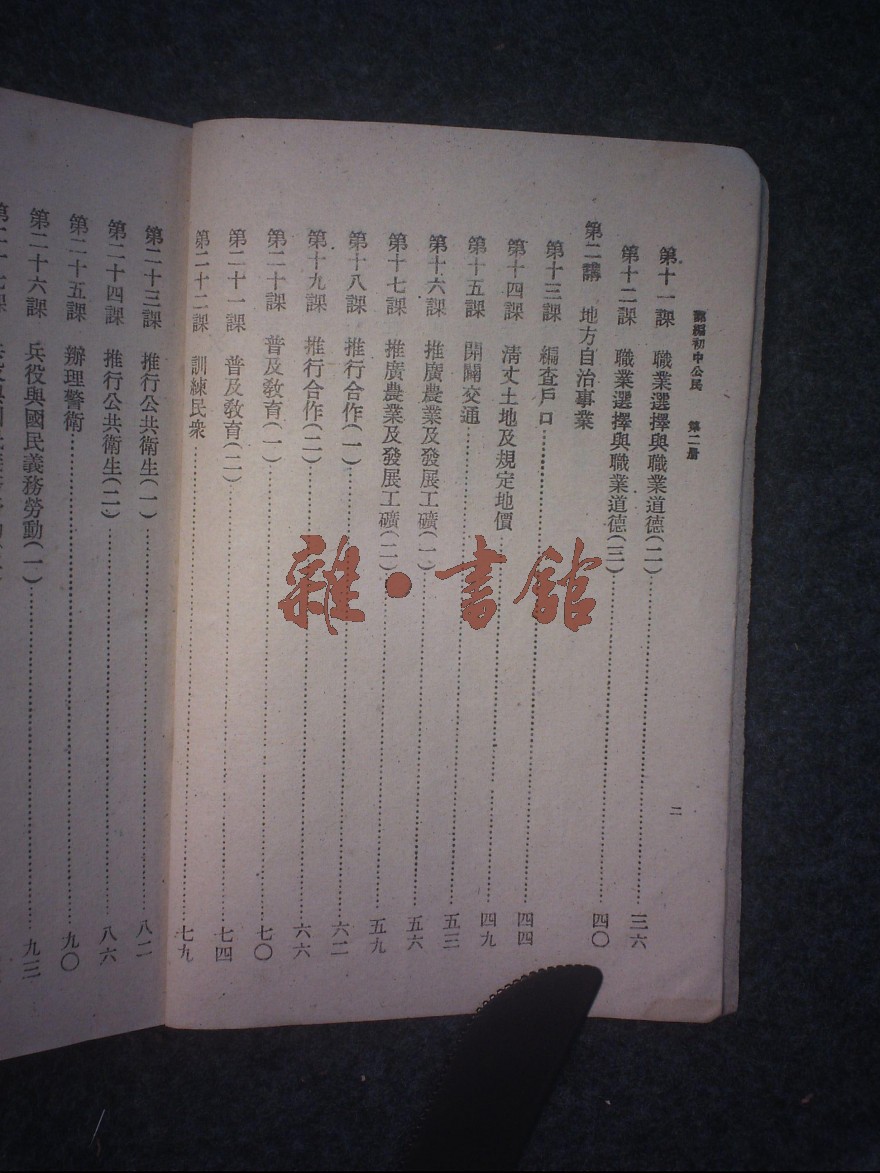 編初中公民 第二册
二
第十一課 職業選擇與職業道德(二)……三六
第十二課 職業選擇與職業道德(三)……四〇
第二講 地方自治事業
第十三課 編查戶口……四四
第十四課 清丈土地及規定地價……四九
第十五課 開闢交通……五三
第十六課 推廣農業及發展工礦(一)……五六
第十七課 推廣農業及發展工礦(二)……五九
第十八課 推行合作(一)……六二
第十九課 推行合作(二)……六六
第二十課 普及教育(一)……七〇
第二十一課 普及教育(二)……七四
第二十二課 訓練民衆……七九
第二十三課 推行公共衛生(一)……八二
第二十四課 推行公共衛生(二)……八六
第二十五課 辦理警衛……九〇
第二十六課 兵役與國民義務勞動(一)……九三
雜·書館